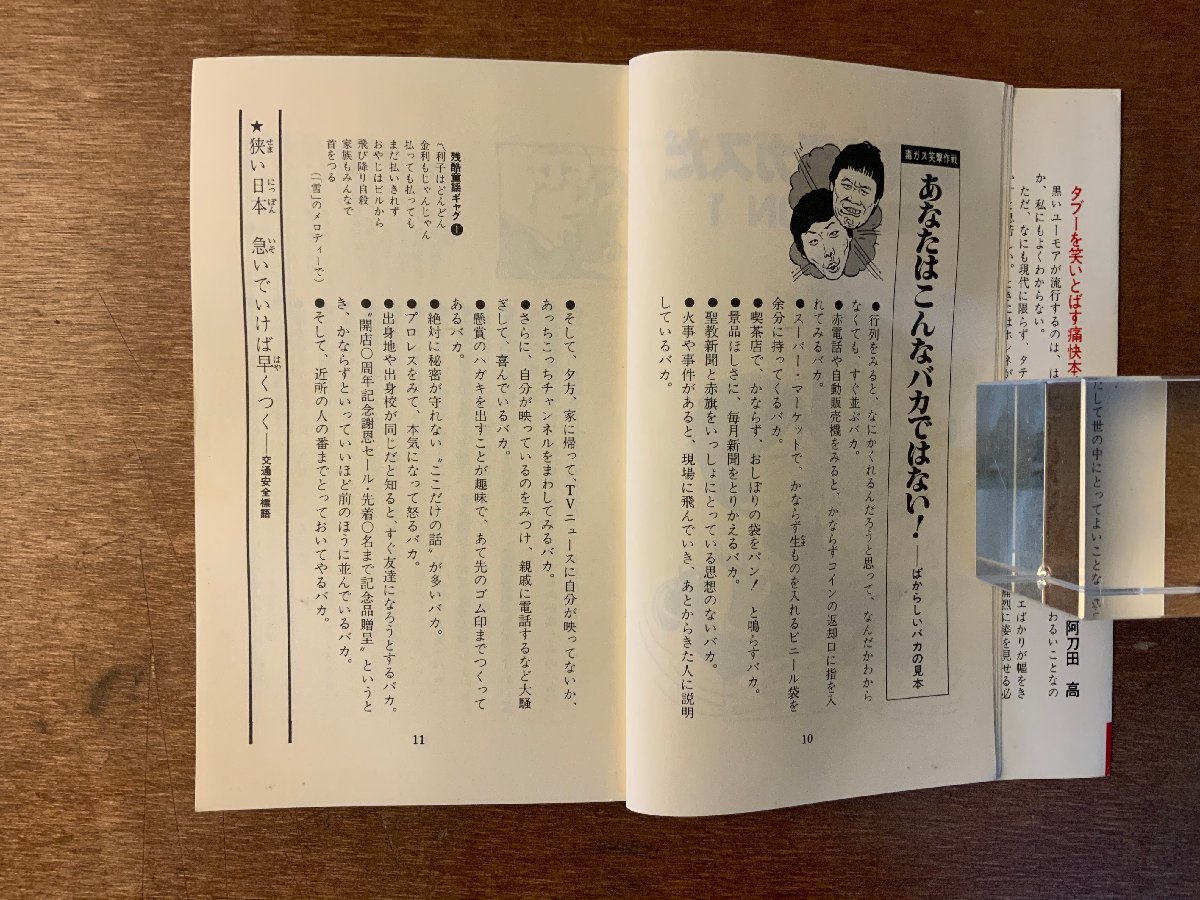 タブーを笑いとばす痛快本
阿刀田 高
黒いユーモアが流行するのは、
か、私にもよくわからない。
ただ、なにも現代に限らず、
毒ガス笑撃作戦
あなたはこんなバカではない！
――ばからしいバカの見本
●行列をみると、なにかくれるんだろうと思って、なんだかわから
なくても、すぐ並ぶバカ。
●赤電話や自動販売機をみると、かならずコインの返却口に指を入
れてみるバカ。
●スーパー・マーケットで、かならず生ものを入れるビニール袋を
余分に持ってくるバカ。
●喫茶店で、かならず、おしぼりの袋をパン！　と鳴らすバカ。
●景品ほしさに、毎月新聞をとりかえるバカ。
●聖教新聞と赤旗をいっしょにとっている思想のないバカ。
●火事や事件があると、現場に飛んでいき、あとからきた人に説明
しているバカ。
10
●そして、夕方、家に帰って、TVニュースに自分が映ってないか、
あっちこっちチャンネルをまわしてみるバカ。
●さらに、自分が映っているのをみつけ、親戚に電話するなど大騒
ぎして、喜んでいるバカ。
●懸賞のハガキを出すことが趣味で、あて先のゴム印までつくって
あるバカ。
●絶対に秘密が守れない〝ここだけの話〟が多いバカ。
●プロレスをみて、本気になって怒るバカ。
●出身地や出身校が同じだと知ると、すぐ友達になろうとするバカ。
●〝開店〇周年記念謝恩セール・先着〇名まで記念品贈呈〟というと
き、かならずといっていいほど前のほうに並んでいるバカ。
●そして、近所の人の番までとっておいてやるバカ。
残酷童謡ギャグ❶
〽利子はどんどん
金利もじゃんじゃん
払っても払っても
まだ払いきれず
おやじはビルから
飛び降り自殺
家族もみんなで
首をつる
（「雪」のメロディーで）
★狭い日本　急いでいけば早くつく――交通安全標語
11